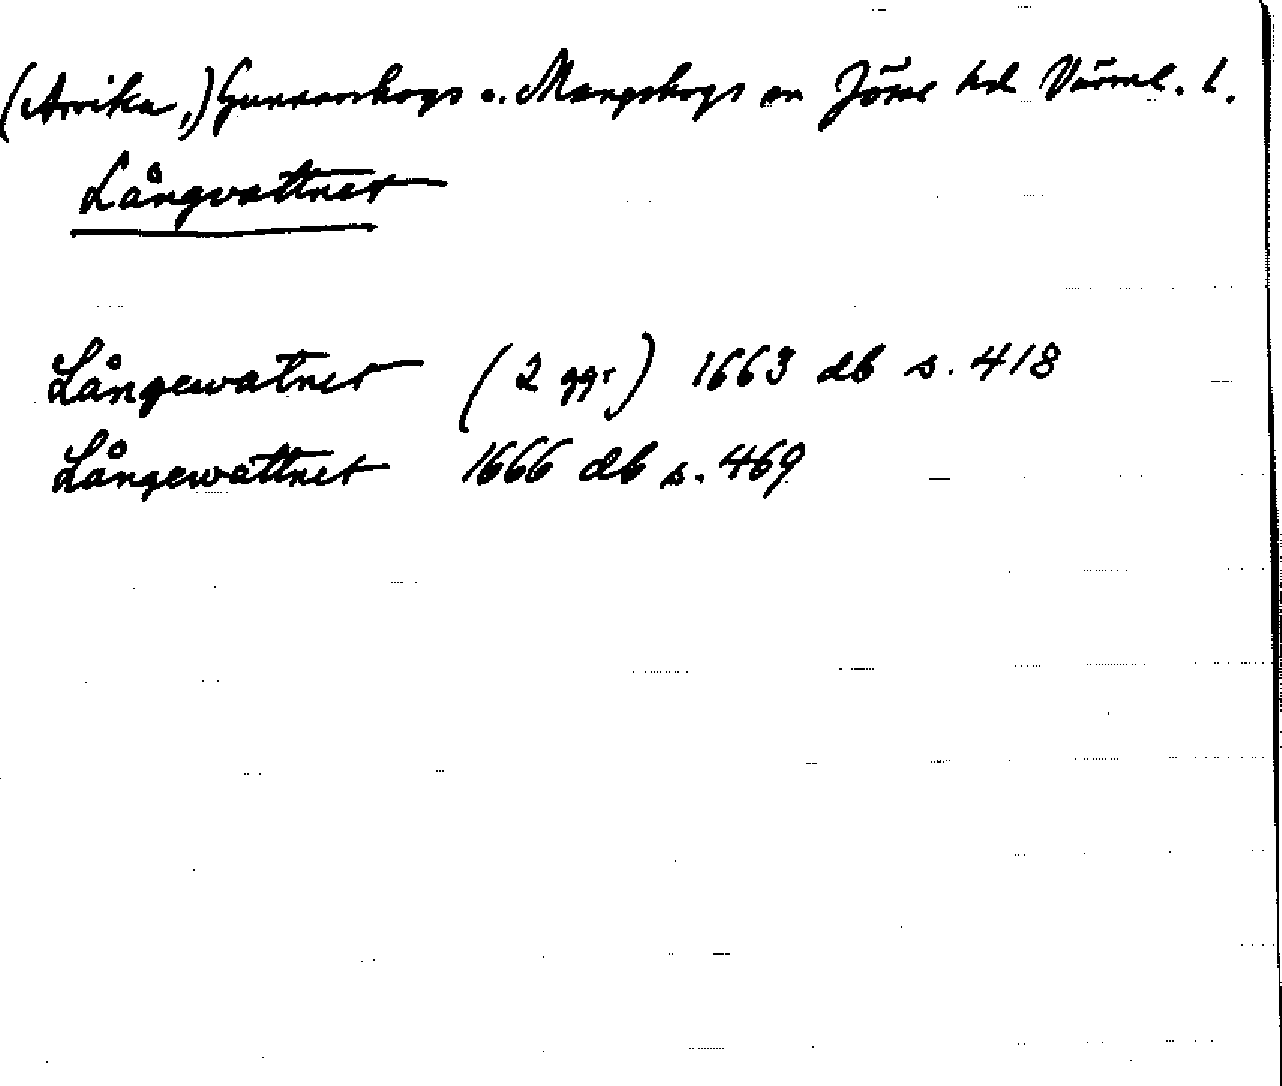 (Arvika,) Gunnarskogs o. Mangskogs sn Jösse hd Värml. l.
Långvattnet
Långewatnet (2 ggr) 1663 db s. 418
Långewattnet 1666 db s. 469